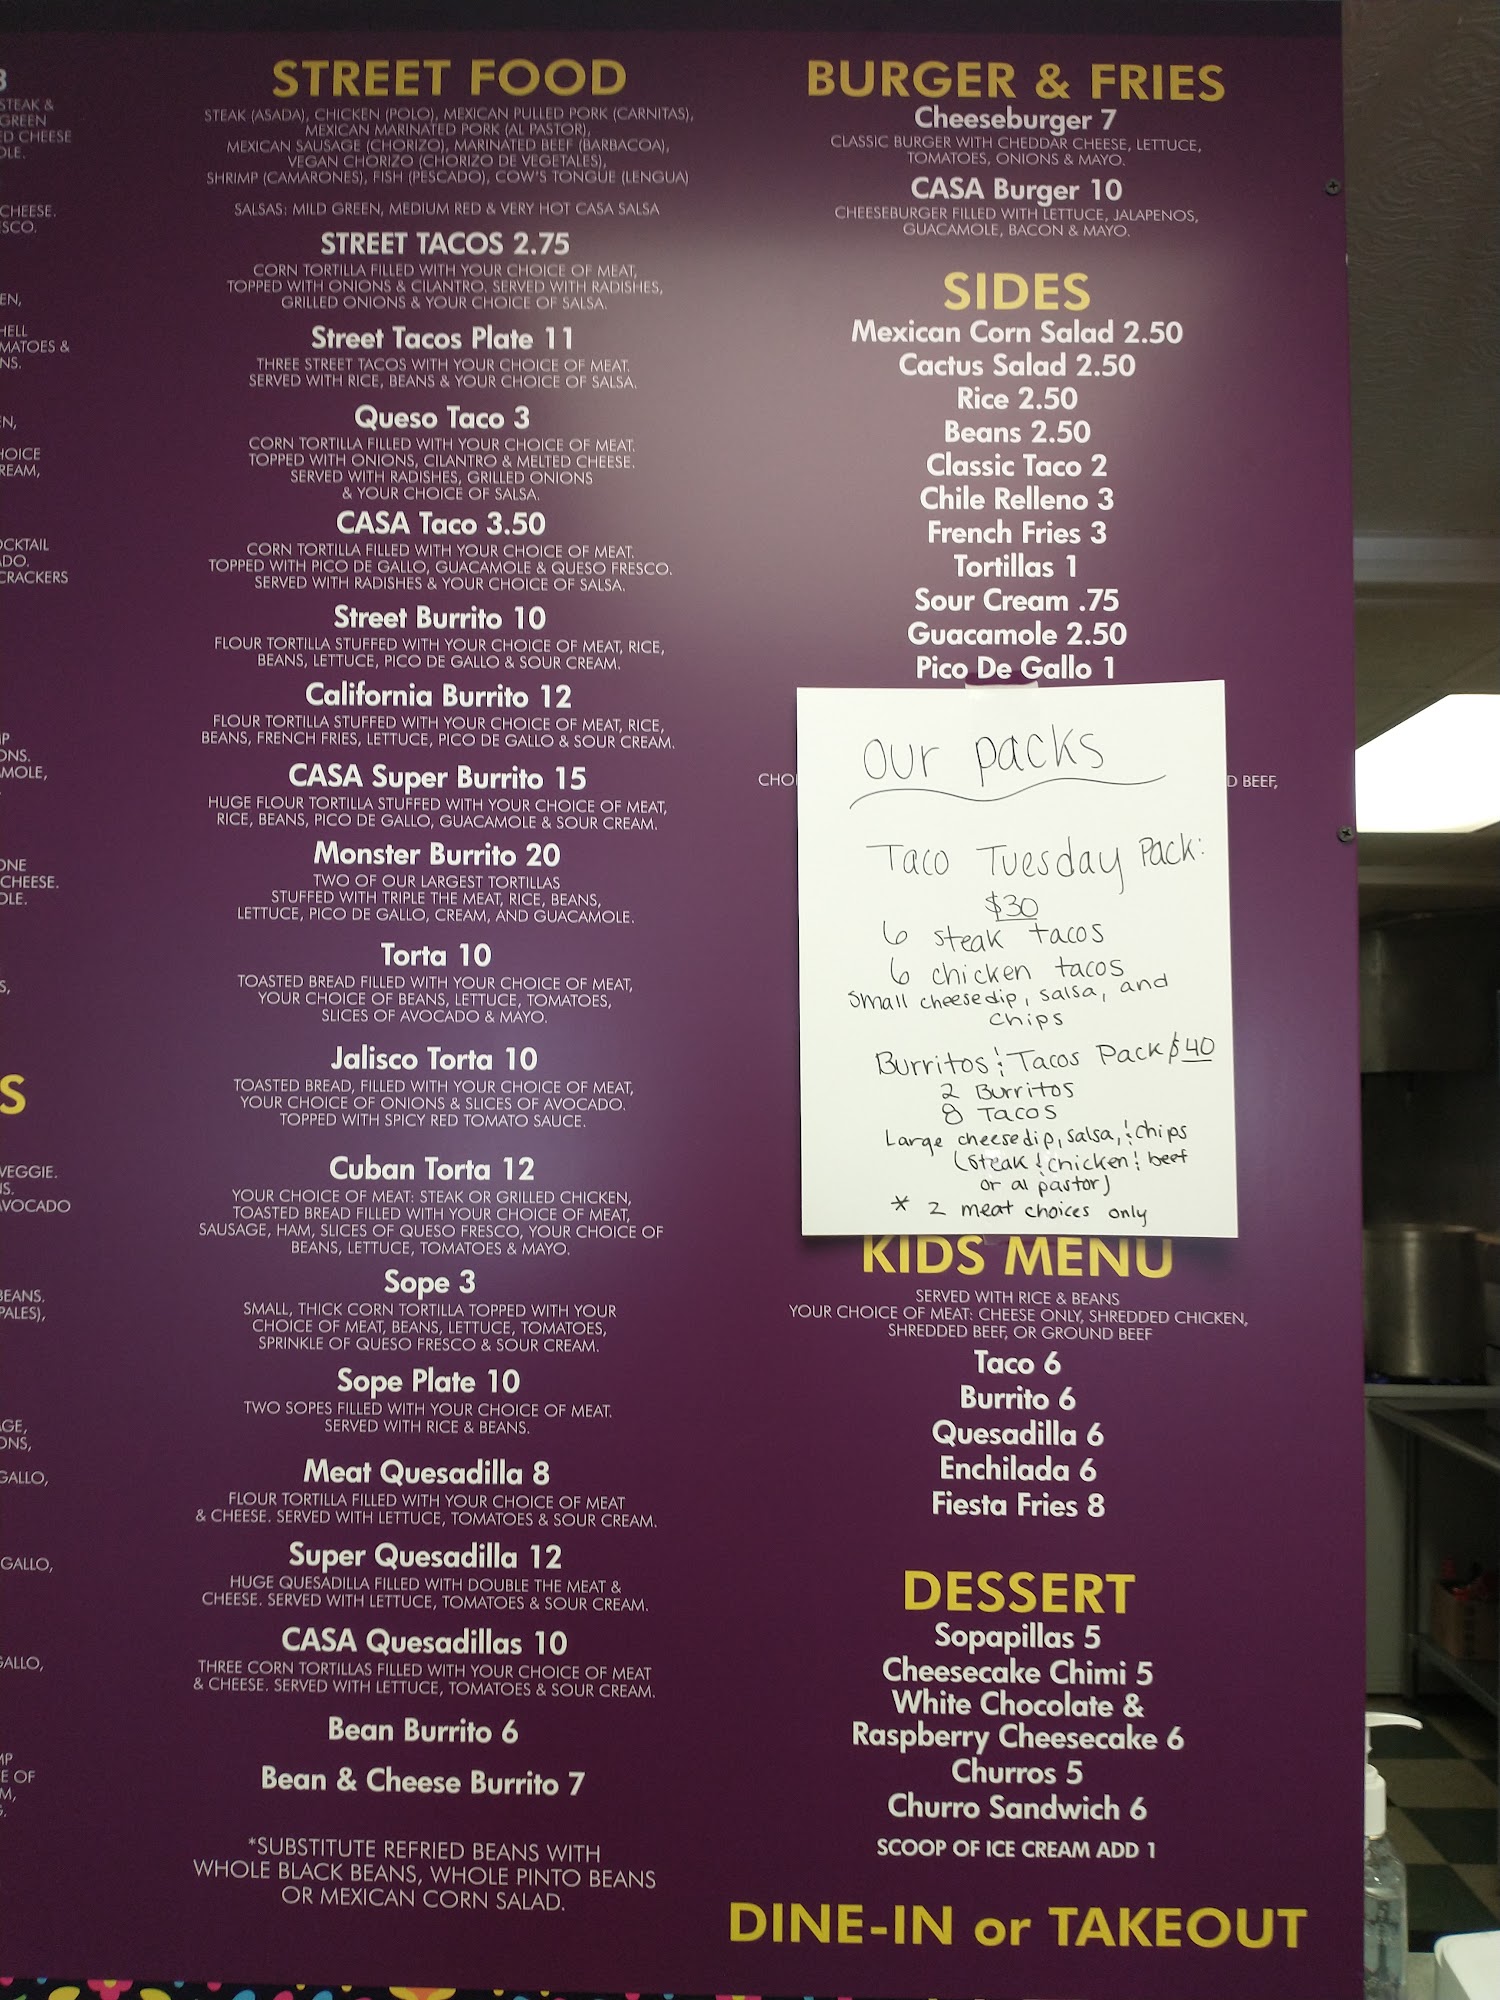 3
STEAK &
GREEN
ED CHEESE
OLE.
CHEESE.
ESCO.
EN,
HELL
MATOES &
NS.
EN,
HOICE
REAM,
OCKTAIL
ADO.
CRACKERS
MP
ONS.
AMOLE,
ONE
CHEESE.
OLE.
S,
S
VEGGIE.
NS.
AVOCADO
BEANS.
PALES),
AGE,
ONS,
GALLO,
GALLO,
GALLO,
MP
E OF
M,
STREET FOOD
STEAK (ASADA), CHICKEN (POLO), MEXICAN PULLED PORK (CARNITAS),
MEXICAN MARINATED PORK (AL PASTOR),
MEXICAN SAUSAGE (CHORIZO), MARINATED BEEF (BARBACOA),
VEGAN CHORIZO (CHORIZO DE VEGETALES),
SHRIMP (CAMARONES), FISH (PESCADO), COW'S TONGUE (LENGUA)
SALSAS: MILD GREEN, MEDIUM RED & VERY HOT CASA SALSA
STREET TACOS 2.75
CORN TORTILLA FILLED WITH YOUR CHOICE OF MEAT,
TOPPED WITH ONIONS & CILANTRO. SERVED WITH RADISHES,
GRILLED ONIONS & YOUR CHOICE OF SALSA.
Street Tacos Plate 11
THREE STREET TACOS WITH YOUR CHOICE OF MEAT.
SERVED WITH RICE, BEANS & YOUR CHOICE OF SALSA.
Queso Taco 3
CORN TORTILLA FILLED WITH YOUR CHOICE OF MEAT.
TOPPED WITH ONIONS, CILANTRO & MELTED CHEESE.
SERVED WITH RADISHES, GRILLED ONIONS
& YOUR CHOICE OF SALSA.
CASA Taco 3.50
CORN TORTILLA FILLED WITH YOUR CHOICE OF MEAT.
TOPPED WITH PICO DE GALLO, GUACAMOLE & QUESO FRESCO.
SERVED WITH RADISHES & YOUR CHOICE OF SALSA.
Street Burrito 10
FLOUR TORTILLA STUFFED WITH YOUR CHOICE OF MEAT, RICE,
BEANS, LETTUCE, PICO DE GALLO & SOUR CREAM.
California Burrito 12
FLOUR TORTILLA STUFFED WITH YOUR CHOICE OF MEAT, RICE,
BEANS, FRENCH FRIES, LETTUCE, PICO DE GALLO & SOUR CREAM.
CASA Super Burrito 15
HUGE FLOUR TORTILLA STUFFED WITH YOUR CHOICE OF MEAT,
RICE, BEANS, PICO DE GALLO, GUACAMOLE & SOUR CREAM.
Monster Burrito 20
TWO OF OUR LARGEST TORTILLAS
STUFFED WITH TRIPLE THE MEAT, RICE, BEANS,
LETTUCE, PICO DE GALLO, CREAM, AND GUACAMOLE.
Torta 10
TOASTED BREAD FILLED WITH YOUR CHOICE OF MEAT,
YOUR CHOICE OF BEANS, LETTUCE, TOMATOES,
SLICES OF AVOCADO & MAYO.
Jalisco Torta 10
TOASTED BREAD, FILLED WITH YOUR CHOICE OF MEAT,
YOUR CHOICE OF ONIONS & SLICES OF AVOCADO.
TOPPED WITH SPICY RED TOMATO SAUCE.
Cuban Torta 12
YOUR CHOICE OF MEAT: STEAK OR GRILLED CHICKEN,
TOASTED BREAD FILLED WITH YOUR CHOICE OF MEAT,
SAUSAGE, HAM, SLICES OF QUESO FRESCO, YOUR CHOICE OF
BEANS, LETTUCE, TOMATOES & MAYO.
Sope 3
SMALL, THICK CORN TORTILLA TOPPED WITH YOUR
CHOICE OF MEAT, BEANS, LETTUCE, TOMATOES,
SPRINKLE OF QUESO FRESCO & SOUR CREAM.
Sope Plate 10
TWO SOPES FILLED WITH YOUR CHOICE OF MEAT.
SERVED WITH RICE & BEANS.
Meat Quesadilla 8
FLOUR TORTILLA FILLED WITH YOUR CHOICE OF MEAT
& CHEESE. SERVED WITH LETTUCE, TOMATOES & SOUR CREAM.
Super Quesadilla 12
HUGE QUESADILLA FILLED WITH DOUBLE THE MEAT &
CHEESE. SERVED WITH LETTUCE, TOMATOES & SOUR CREAM.
CASA Quesadillas 10
THREE CORN TORTILLAS FILLED WITH YOUR CHOICE OF MEAT
& CHEESE. SERVED WITH LETTUCE, TOMATOES & SOUR CREAM.
Bean Burrito 6
Bean & Cheese Burrito 7
*SUBSTITUTE REFRIED BEANS WITH
WHOLE BLACK BEANS, WHOLE PINTO BEANS
OR MEXICAN CORN SALAD.
BURGER & FRIES
Cheeseburger 7
CLASSIC BURGER WITH CHEDDAR CHEESE, LETTUCE,
TOMATOES, ONIONS & MAYO.
CASA Burger 10
CHEESEBURGER FILLED WITH LETTUCE, JALAPENOS,
GUACAMOLE, BACON & MAYO.
SIDES
Mexican Corn Salad 2.50
Cactus Salad 2.50
Rice 2.50
Beans 2.50
Classic Taco 2
Chile Relleno 3
French Fries 3
Tortillas 1
Sour Cream .75
Guacamole 2.50
Pico De Gallo 1
CHO
D BEEF,
our packs
Taco Tuesday Pack:
$30
6 steak tacos
6 chicken tacos
small cheesedip, salsa, and
chips
Burritos & Tacos Pack $40
2 Burritos
8 Tacos
Large cheesedip, salsa, & chips
(steak & chicken & beef
or al pastor)
* 2 meat choices only
KIDS MENU
SERVED WITH RICE & BEANS
YOUR CHOICE OF MEAT: CHEESE ONLY, SHREDDED CHICKEN,
SHREDDED BEEF, OR GROUND BEEF
Taco 6
Burrito 6
Quesadilla 6
Enchilada 6
Fiesta Fries 8
DESSERT
Sopapillas 5
Cheesecake Chimi 5
White Chocolate &
Raspberry Cheesecake 6
Churros 5
Churro Sandwich 6
SCOOP OF ICE CREAM ADD 1
DINE-IN or TAKEOUT